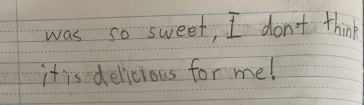 was so sweet, I don't think
it is delicious for me!